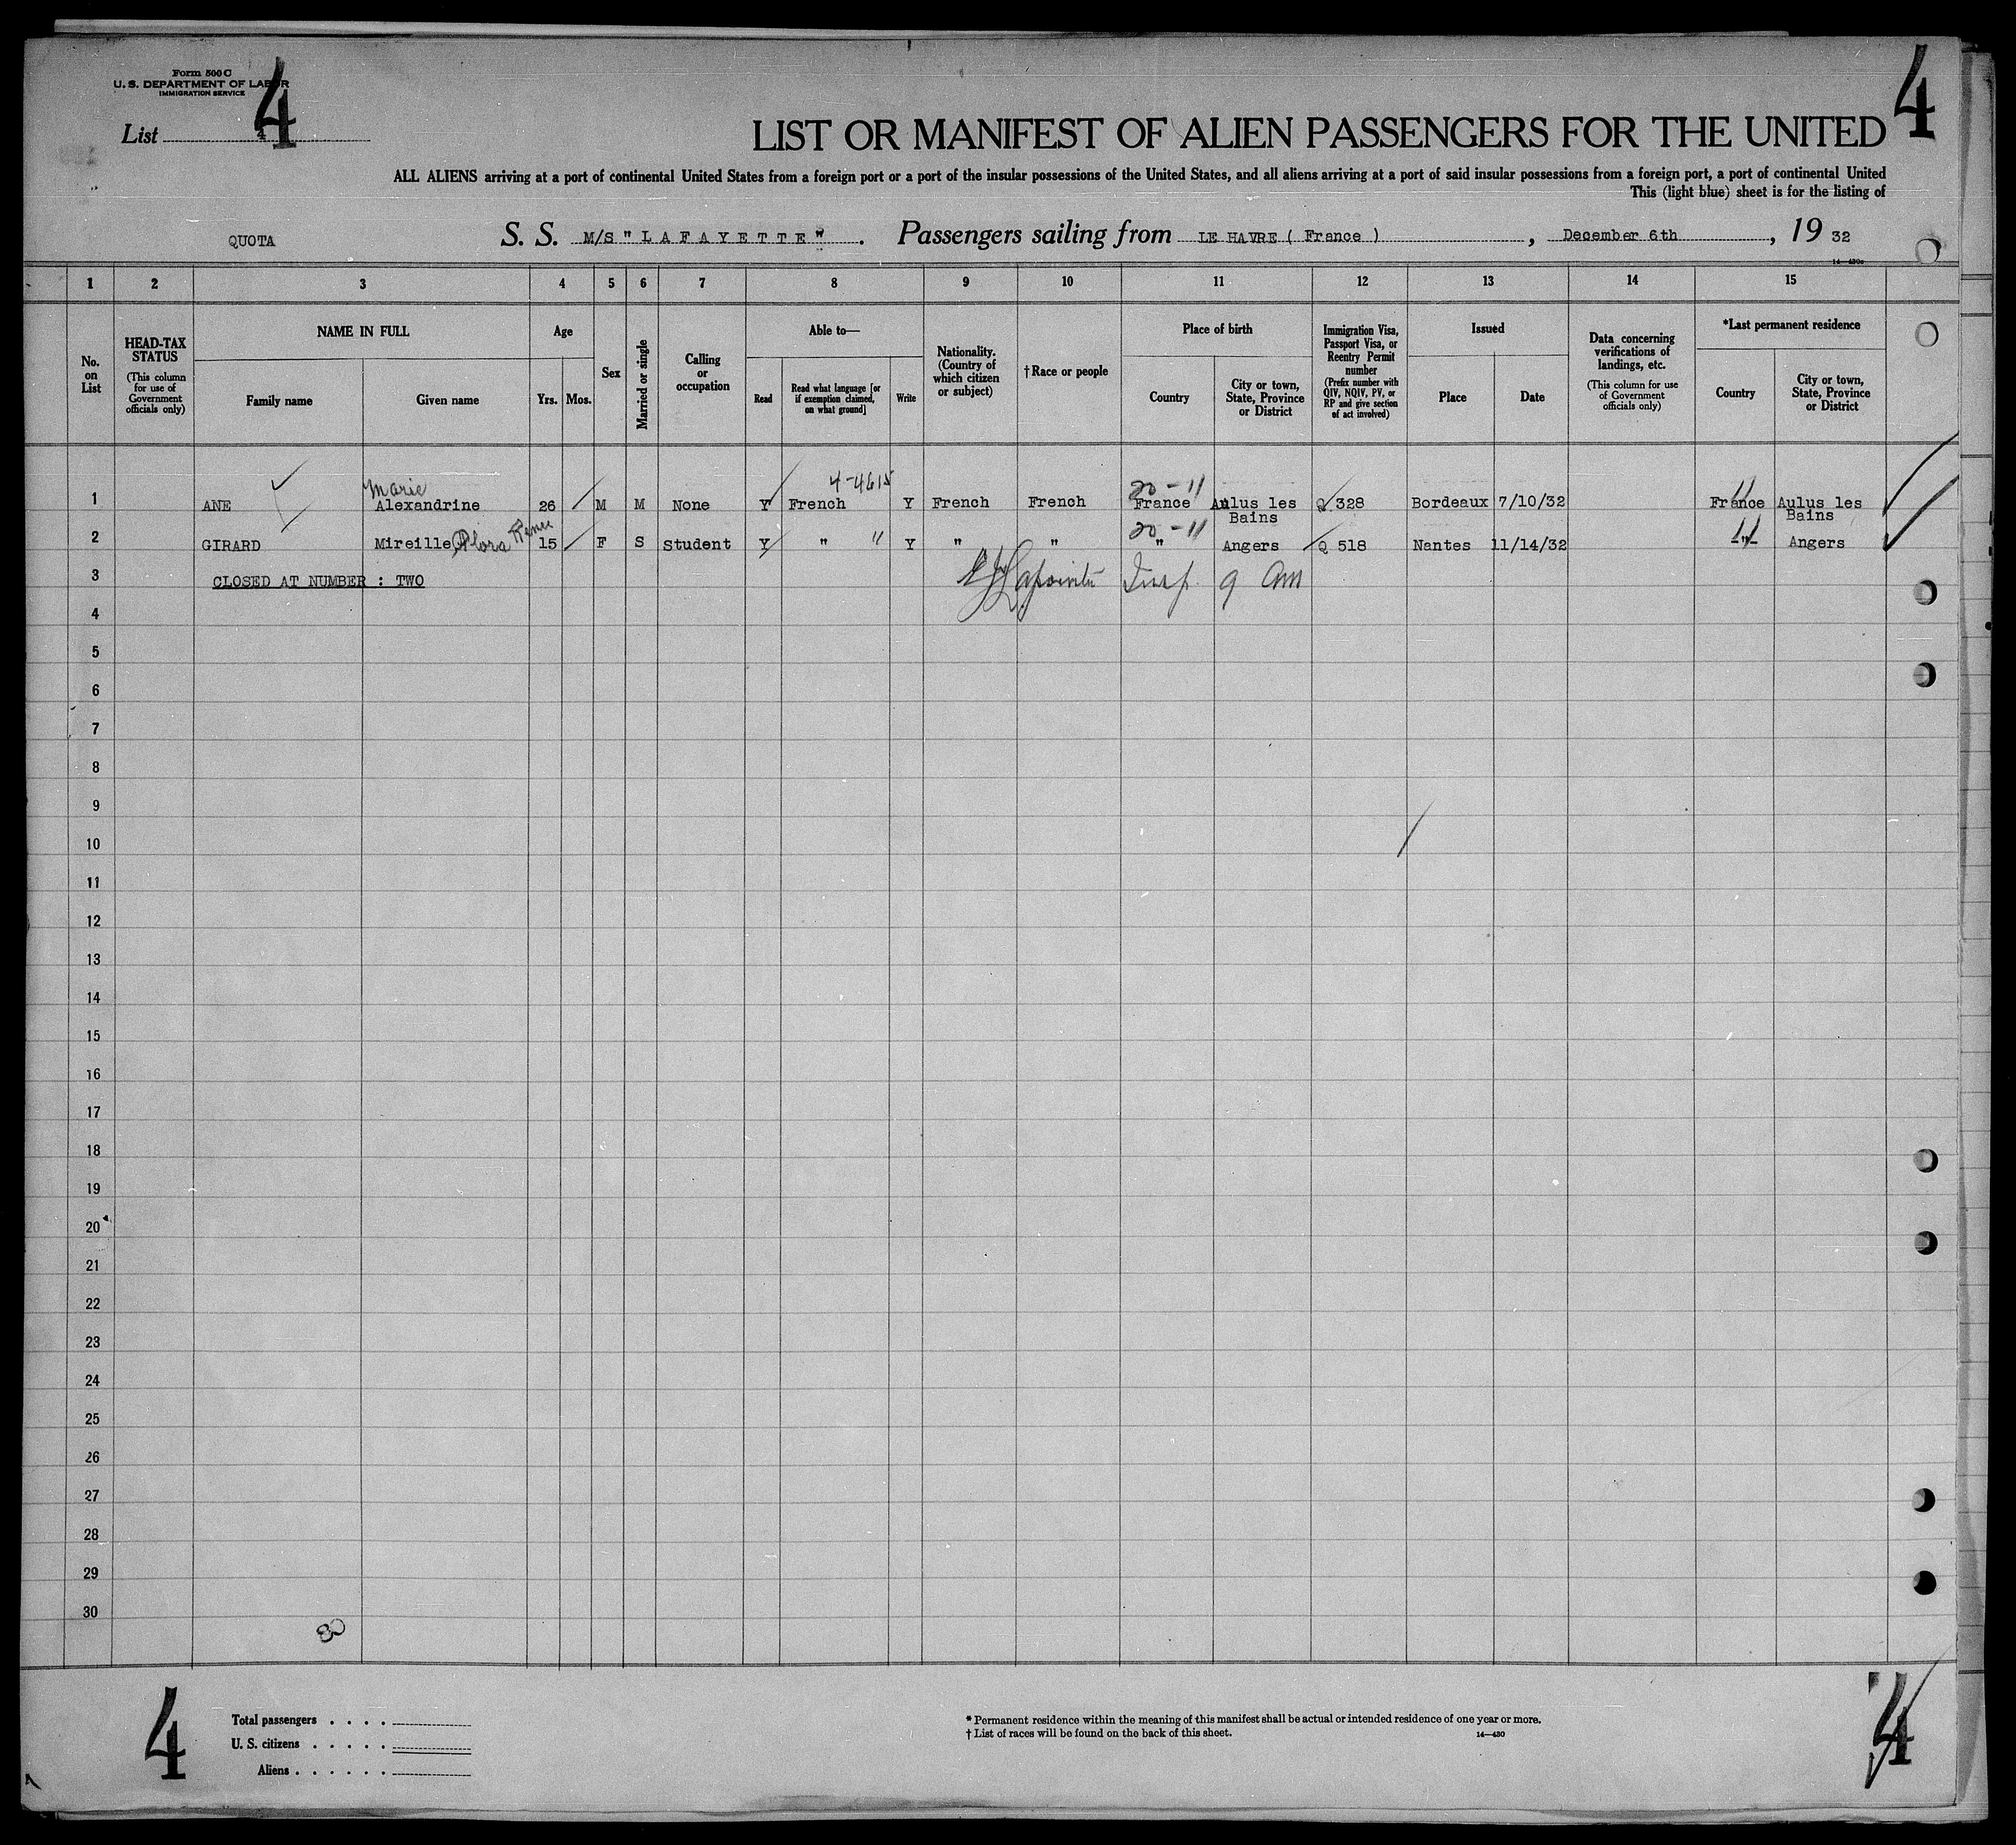 Form 500 C
U. S. DEPARTMENT OF LABOR
IMMIGRATION SERVICE
4
4
List 4
LIST OR MANIFEST OF ALIEN PASSENGERS FOR THE UNITED
ALL ALIENS arriving at a port of continental United States from a foreign port or a port of the insular possessions of the United States, and all aliens arriving at a port of said insular possessions from a foreign port, a port of continental United
This (light blue) sheet is for the listing of
QUOTA S. S. M/S "LAFAYETTE". Passengers sailing from LE HAVRE ( France ), December 6th, 19 32
14—430c
1 2 3 4 5 6 7 8 9 10 11 12 13 14 15
No. on List
HEAD-TAX STATUS (This column for use of Government officials only)
NAME IN FULL
Family name Given name
Age
Yrs. Mos.
Sex
Married or single
Calling or occupation
Able to—
Read Read what language [or if exemption claimed, on what ground] Write
Nationality. (Country of which citizen or subject)
†Race or people
Place of birth
Country City or town, State, Province or District
Immigration Visa, Passport Visa, or Reentry Permit number (Prefix number with QIV, NQIV, PV, or RP and give section of act involved)
Issued
Place Date
Data concerning verifications of landings, etc. (This column for use of Government officials only)
*Last permanent residence
Country City or town, State, Province or District
Marie 4-4615 20-11 11
1 ANE Alexandrine 26 M M None Y French Y French French France Aulus les Bains Q 328 Bordeaux 7/10/32 France Aulus les Bains
20-11 11
2 GIRARD Mireille Flora Renee 15 F S Student Y " " Y " " " Angers Q 518 Nantes 11/14/32 " Angers
3 CLOSED AT NUMBER : TWO Lapointe Insp. 9 am
4
5
6
7
8
9
10
11
12
13
14
15
16
17
18
19
20
21
22
23
24
25
26
27
28
29
30
4
Total passengers . . . .
U. S. citizens . . . . .
Aliens . . . . . .
* Permanent residence within the meaning of this manifest shall be actual or intended residence of one year or more.
† List of races will be found on the back of this sheet.
14—430
4